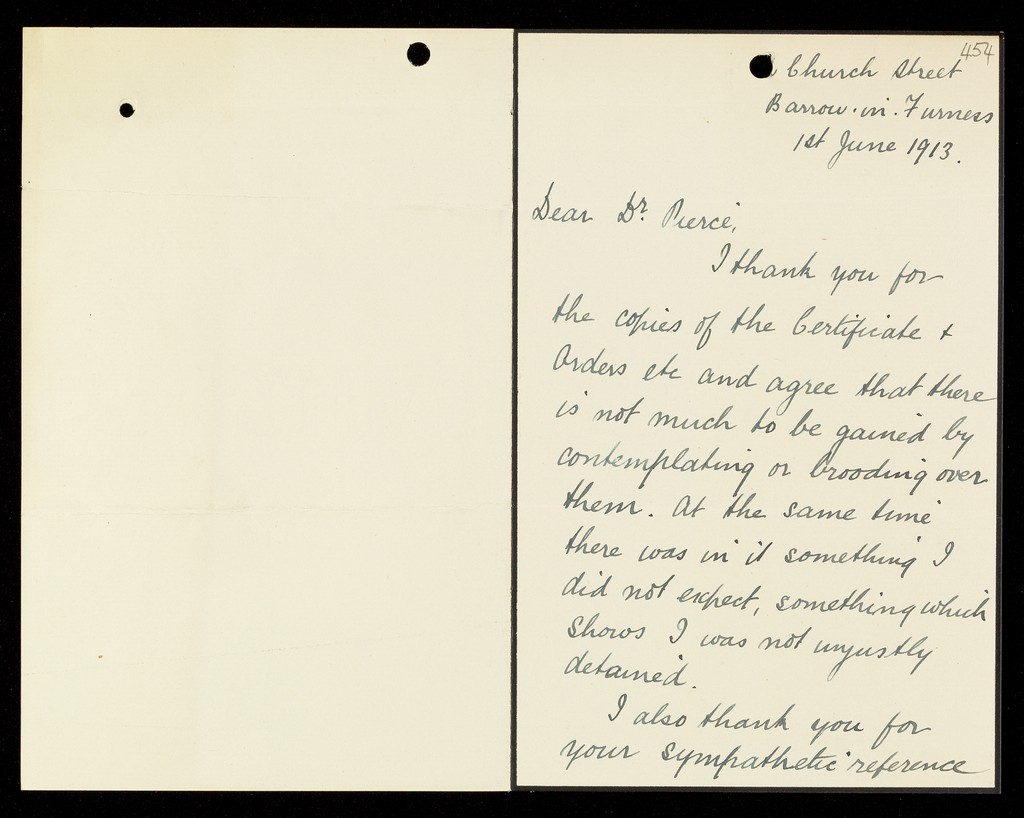 454
Church Street
Barrow-in-Furness
1st June 1913.
Dear Dr. Pierce,
I thank you for
the copies of the Certificate +
Orders etc and agree that there
is not much to be gained by
contemplating or brooding over
them. At the same time
there was in it something I
did not expect, something which
shows I was not unjustly
detained.
I also thank you for
your sympathetic reference